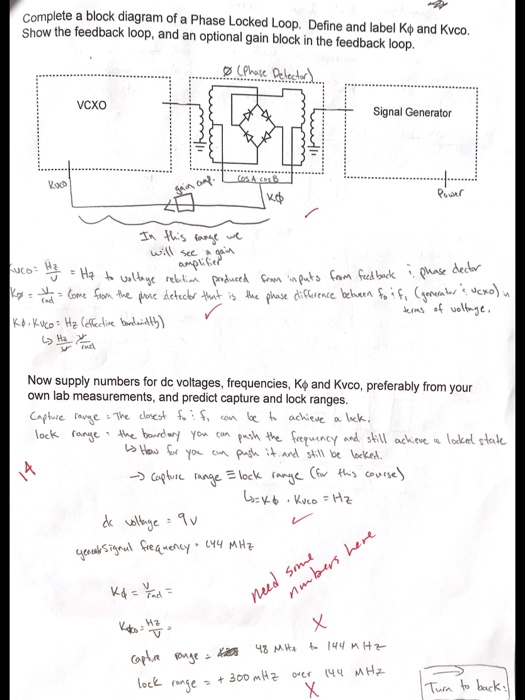 Complete a block diagram of a Phase Locked Loop. Define and label Kϕ and Kvco.
Show the feedback loop, and an optional gain block in the feedback loop.
Ø (Phase Detector)
VCXO
Signal Generator
Kvco
gain amp.
cos A cos B
Kϕ
Power
In this range we
will see a gain
amplifier
Kvco = Hz/V = Hz to voltage relation produced from inputs from feedback & phase dector
Kϕ = V/rad = Come from the phase detector that is the phase difference between fo & f, (generator & vcxo) in
terms of voltage.
Kϕ. Kvco = Hz (effective bandwidth)
↳ Hz/V · V/rad
Now supply numbers for dc voltages, frequencies, Kϕ and Kvco, preferably from your
own lab measurements, and predict capture and lock ranges.
Capture range = The closest fo & f, can be to achieve a lock.
lock range = the boundary you can push the frequency and still achieve a locked state
↳ How far you can push it and still be locked.
14
→ Capture range ≡ lock range (for this course)
↳ = Kϕ . Kvco = Hz
dc voltage = 9v
Signal frequency = 144 MHz
need some
numbers here
Kϕ = V/rad =
Kvco = Hz/V =
X
Captre range = 48 MHz to 144 MHz
lock range = + 300 mHz over 144 MHz
X
Turn to back: